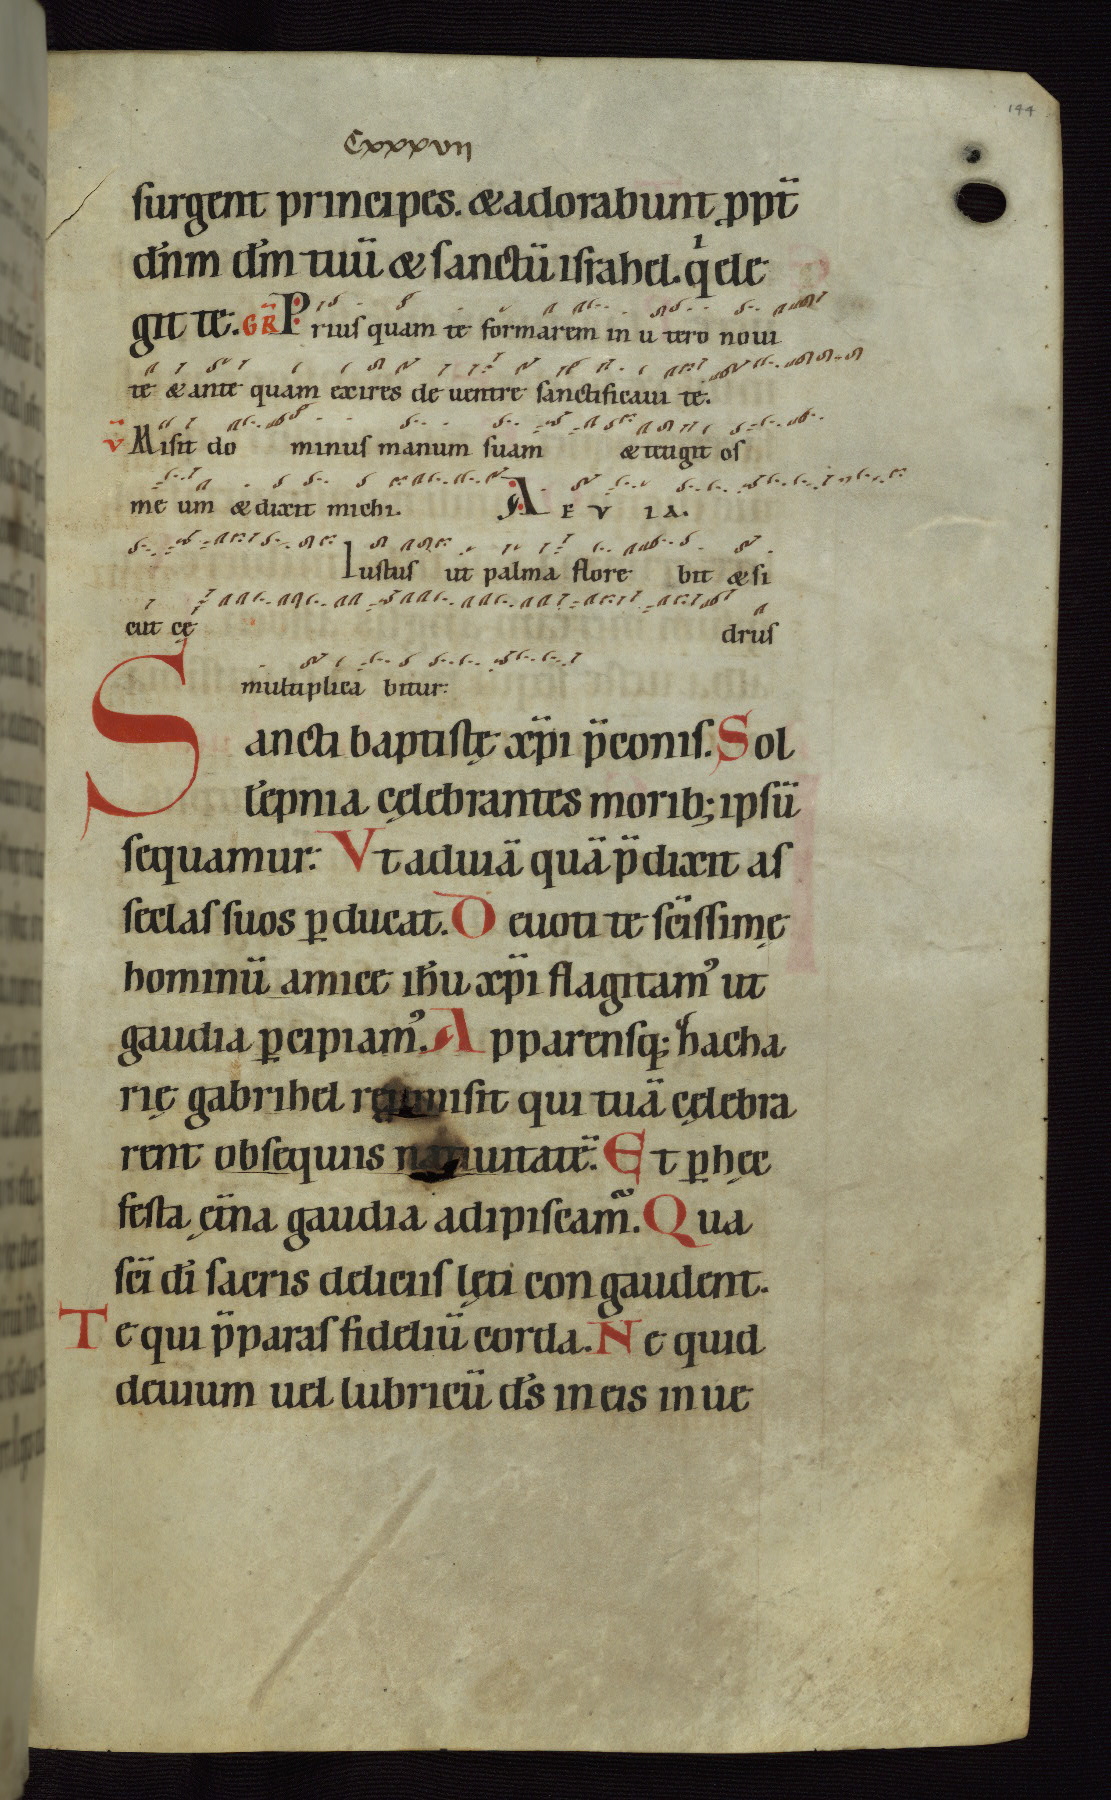 144
Cxxxvii
surgent principes. & adorabunt ꝓpt̄
dn̄m dm̄ tuū & sanctū israhel. qͥ ele
git te. GR̄ Prius quam te formarem in u tero noui
te & ante quam exires de uentre sanctificaui te.
v̄ Misit do minus manum suam & tetigit os
me um & dixit michi. A E V I A.
Iustus ut palma flore bit & si
cut cę drus
multiplica bitur:
Sancti baptistę xp̄i p̄conis. Sol
lēpnia cęlebrantes morib; ipsū
sequamur: Vt ad uiā quā p̄dixit as
seclas suos ꝑducat. Deuoti te sc̄issimę
hominū amice ih̄u xp̄i flagitamꝰ ut
gaudia ꝑcipiamꝰ. Apparensq; hacha
rię gabrihel repromisit qui tuā cęlebra
rent obsequiis natiuitatē. Et ꝑ hęc
festa ęt̄na gaudia adipiscam̄. Qua
sc̄i dī sacris deliciis lęti con gaudent.
Te qui p̄paras fideliū corda. Ne quid
deuium uel lubricū ds̄ in eis in ue